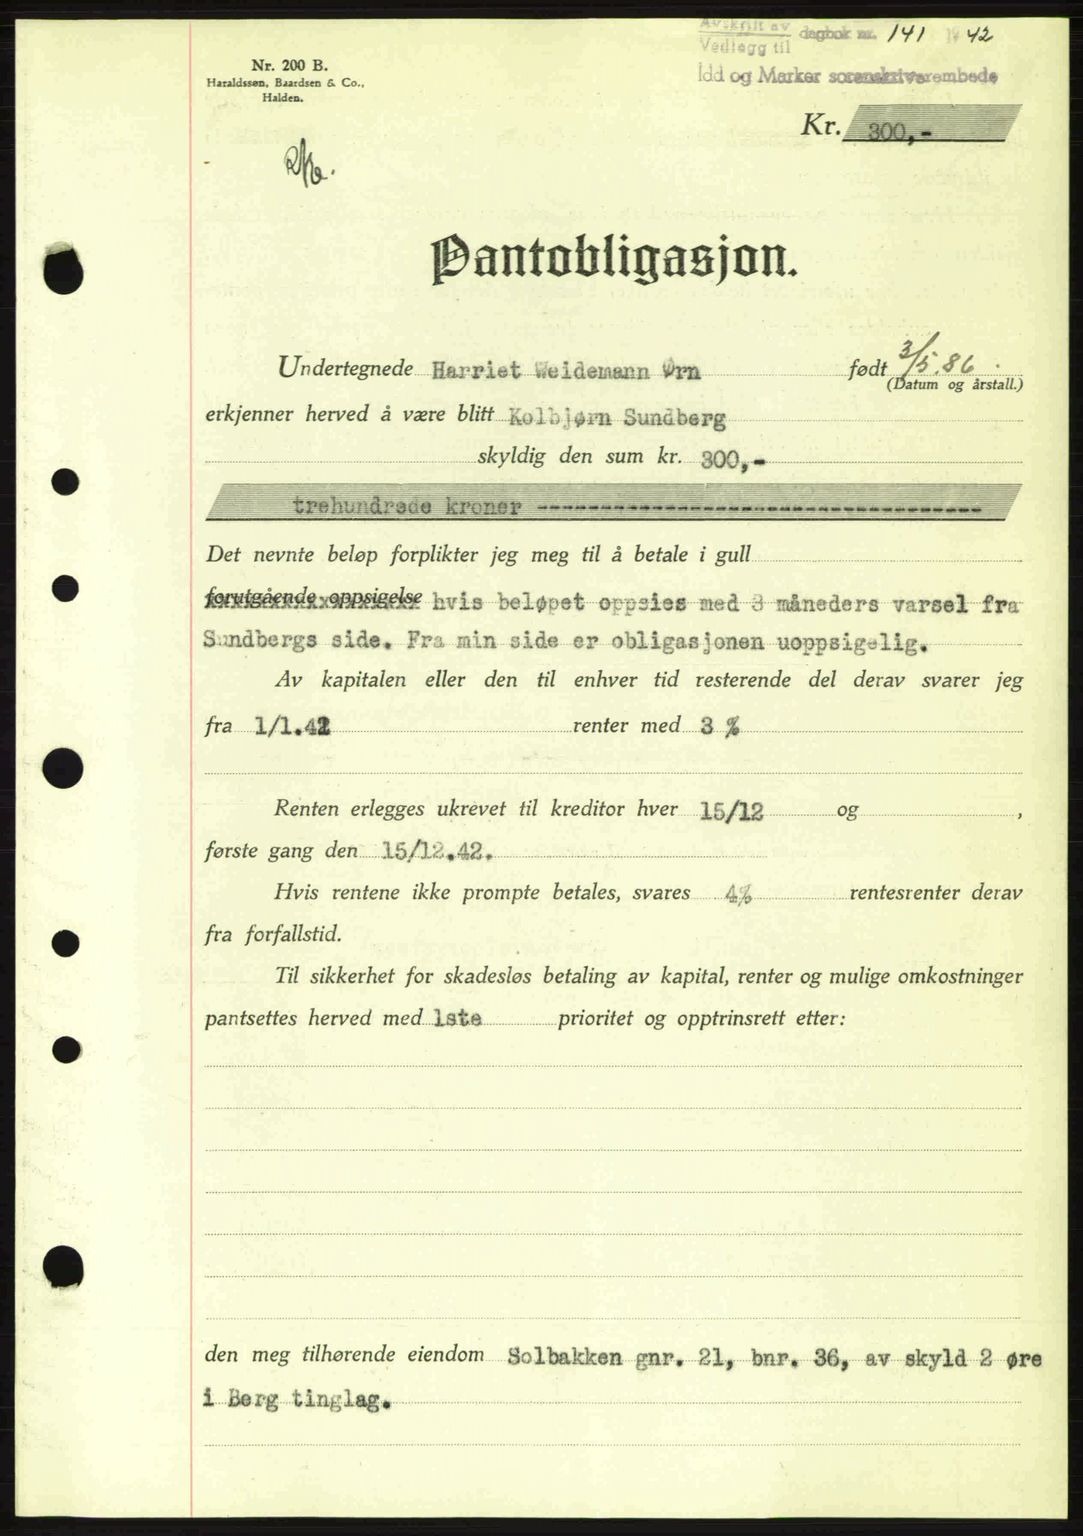 Avskrift av
Vedlegg til
dagbok nr. 141 1942
Idd og Marker sorenskriverembede
Nr. 200 B.
Haraldssøn, Baardsen & Co.,
Halden.
Kr. 300,-
Pantobligasjon.
Undertegnede Harriet Weidemann Ørn født 3/5.86.
(Datum og årstall.)
erkjenner herved å være blitt Kolbjørn Sundberg
skyldig den sum kr. 300,-
trehundrede kroner ----------------------------------
Det nevnte beløp forplikter jeg meg til å betale i gull
forutgående oppsigelse hvis beløpet oppsies med 3 måneders varsel fra
Sundbergs side. Fra min side er obligasjonen uoppsigelig.
Av kapitalen eller den til enhver tid resterende del derav svarer jeg
fra 1/1.42 renter med 3 %
Renten erlegges ukrevet til kreditor hver 15/12 og ,
første gang den 15/12.42.
Hvis rentene ikke prompte betales, svares 4% rentesrenter derav
fra forfallstid.
Til sikkerhet for skadesløs betaling av kapital, renter og mulige omkostninger
pantsettes herved med 1ste prioritet og opptrinsrett etter:
den meg tilhørende eiendom Solbakken gnr. 21, bnr. 36, av skyld 2 øre
i Berg tinglag.